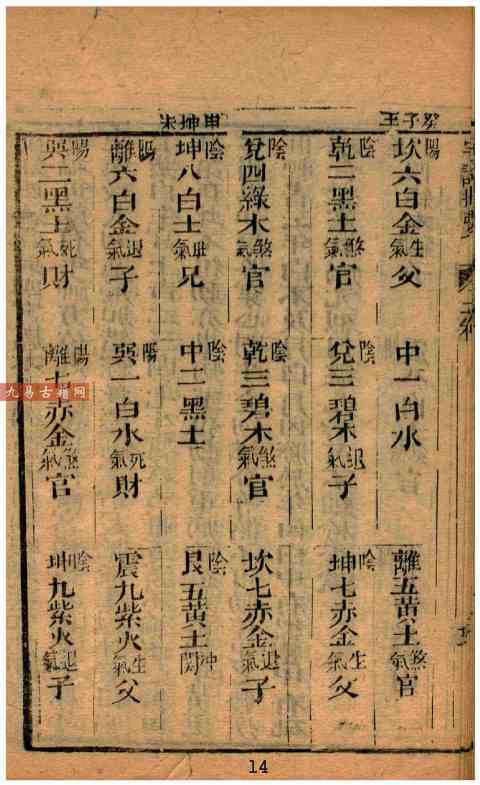 壬子癸
陽坎六白金生氣父　中一白水　陰離五黃土煞氣官
陰乾二黑土煞氣官　陰兌三碧木退氣子　陰坤七赤金生氣父
陰兌四綠木煞氣官　陰乾三碧木煞氣官　陽坎七赤金退氣子
未坤申
陰坤八白土旺氣兄　陰中二黑土　陰艮五黃土冲關
陽離六白金退氣子　陽巽一白水死氣財　震九紫火生氣父
陽巽二黑土死氣財　陽離七赤金煞氣官　陰坤九紫火退氣子
九易古籍网
14